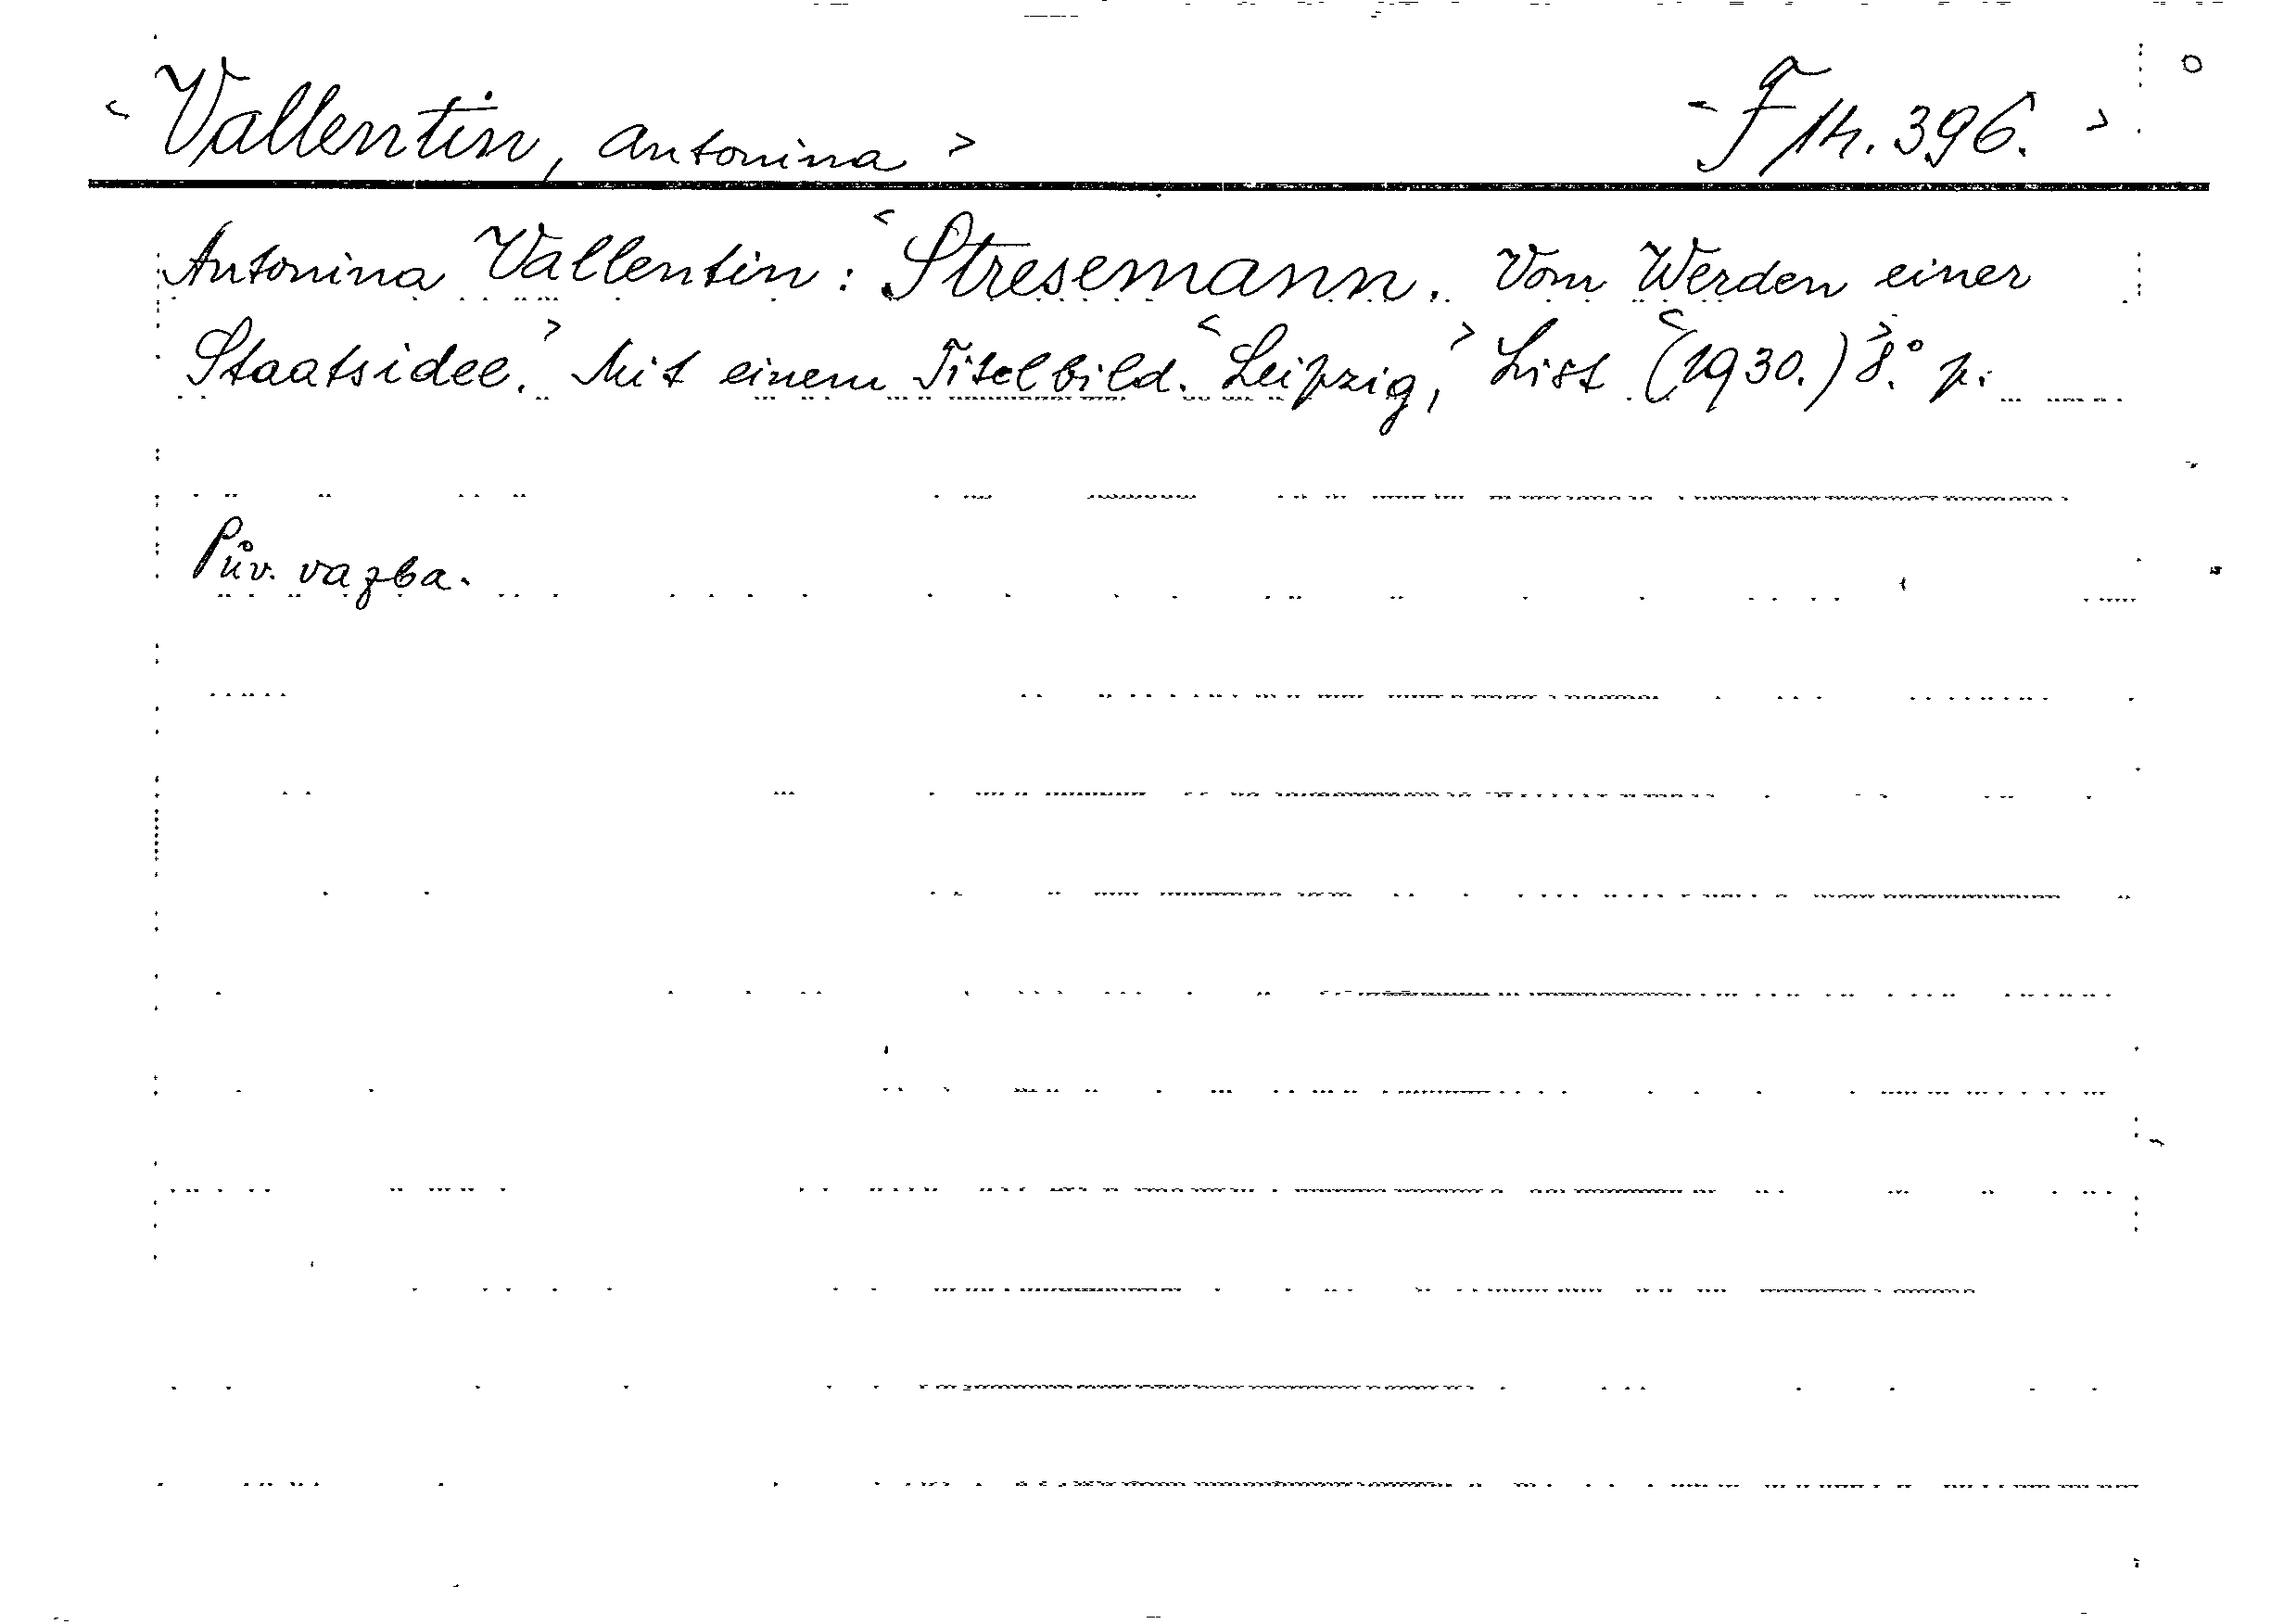 <Vallentin, Antonina> -F 14.396.>
Antonina Vallentin: <Stresemann. Vom Werden einer
Staatsidee.> Mit einem Titelbild. <Leipzig,> List <(1930.)> 8.° p.
Pův. vazba.